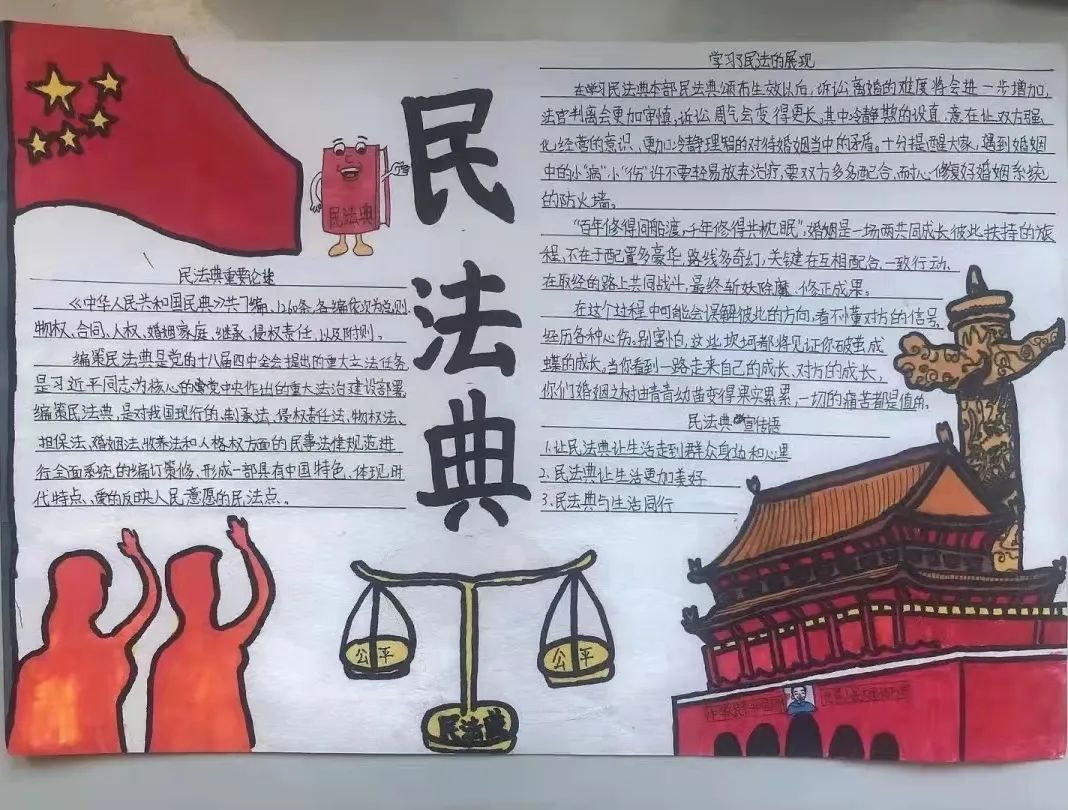 民法典
民法典
民法典重要论述
《中华人民共和国民典》共7编、1260条,各编依次为总则、
物权、合同、人权、婚姻家庭、继承、侵权责任、以及附则。
编纂民法典是党的十八届四中全会提出的重大立法任务
是习近平同志为核心的党中央作出的重大法治建设部署,
编纂民法典,是对我国现行的、制承法、侵权责任法、物权法、
担保法、婚姻法、收养法和人格权方面的民事法律规范进
行全面系统的编订纂修、形成一部具有中国特色、体现时
代特点、的反映人民意愿的民法点。
公平
公平
民法典
学习了民法的展现
在学习民法典本部民法典颁布生效以后,诉讼离婚的难度将会进一步增加,
法官判离会更加审慎,诉讼周气会变得更长,其中冷静期的设直,意在让双方强
化经营的意识,更加冷静理智的对待婚姻当中的矛盾。十分提醒大家,遇到婚姻
中的小“病”小“伤”许不要轻易放弃治疗,要双方多多配合,而心修复好婚姻系统
的防火墙。
“百年修得同船渡,千年修得共枕眠”,婚姻是一场两共同成长彼此扶持的旅
程,不在于配置多豪华,路线多奇幻,关键在互相配合,一致行动,
在取经的路上共同战斗,最终斩妖除魔、修正成果。
在这个过程中可能会误解彼此的方向,看不懂对方的信号,
经历各种心伤,别害怕,这些坎坷都将见证你破茧成
蝶的成长,当你看到一路走来自己的成长,对方的成长,
你们婚姻之树由青青幼苗变得果实累累,一切的痛苦都是值的。
民法典宣传语
1.让民法典让生活走到群众身边和心里
2.民法典让生活更加美好
3.民法典与生活同行